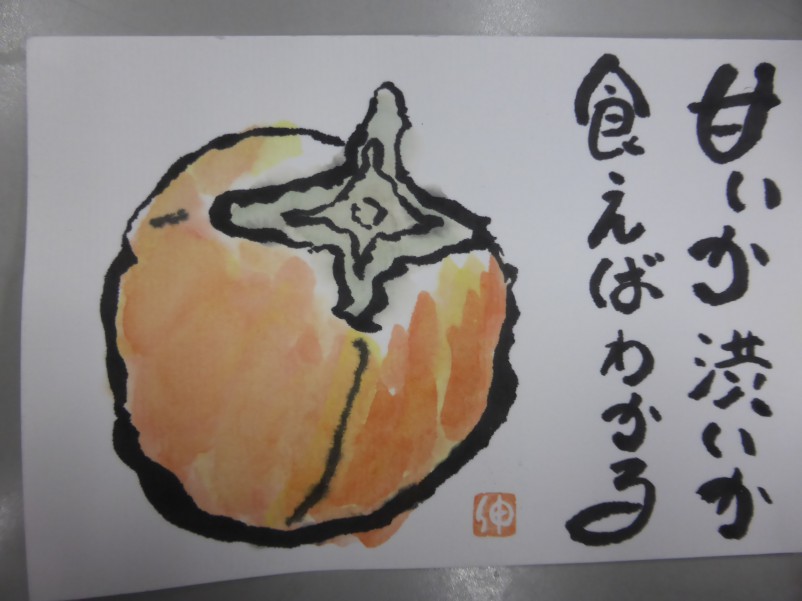 甘いか渋いか
食えばわかる
伸